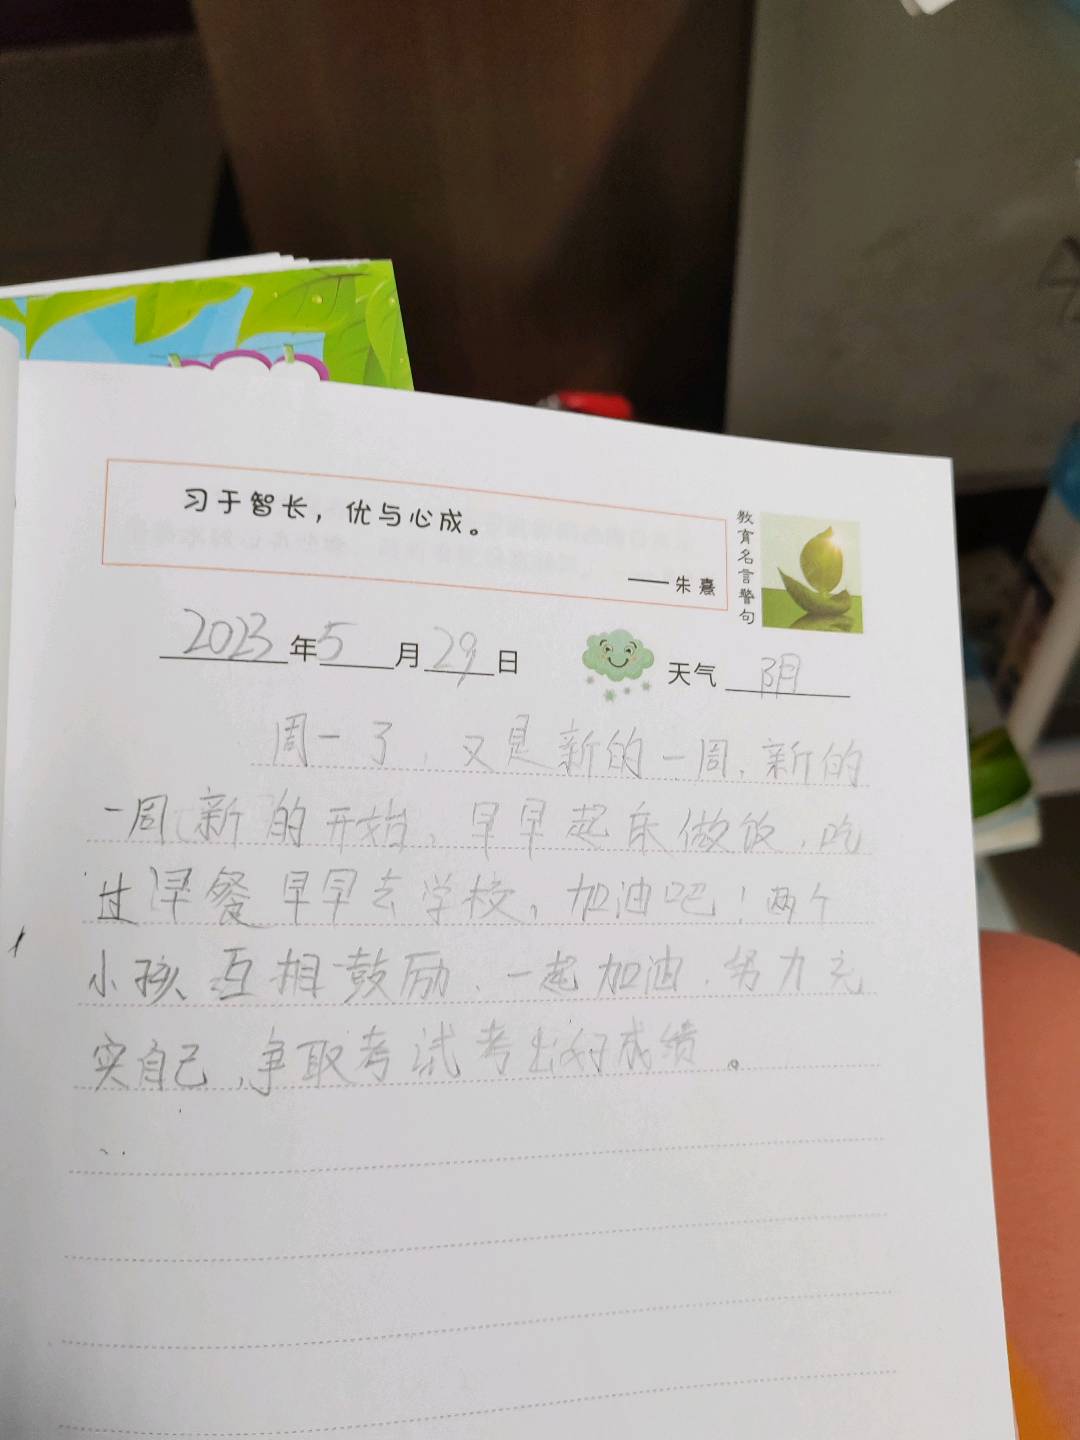 习于智长，优与心成。
——朱熹
教育名言警句
2023年5月29日 天气 阴
周一了，又是新的一周，新的
一周新的开始，早早起床做饭，吃
过早餐早早去学校，加油吧！两个
小孩互相鼓励、一起加油，努力充
实自己，争取考试考出好成绩。